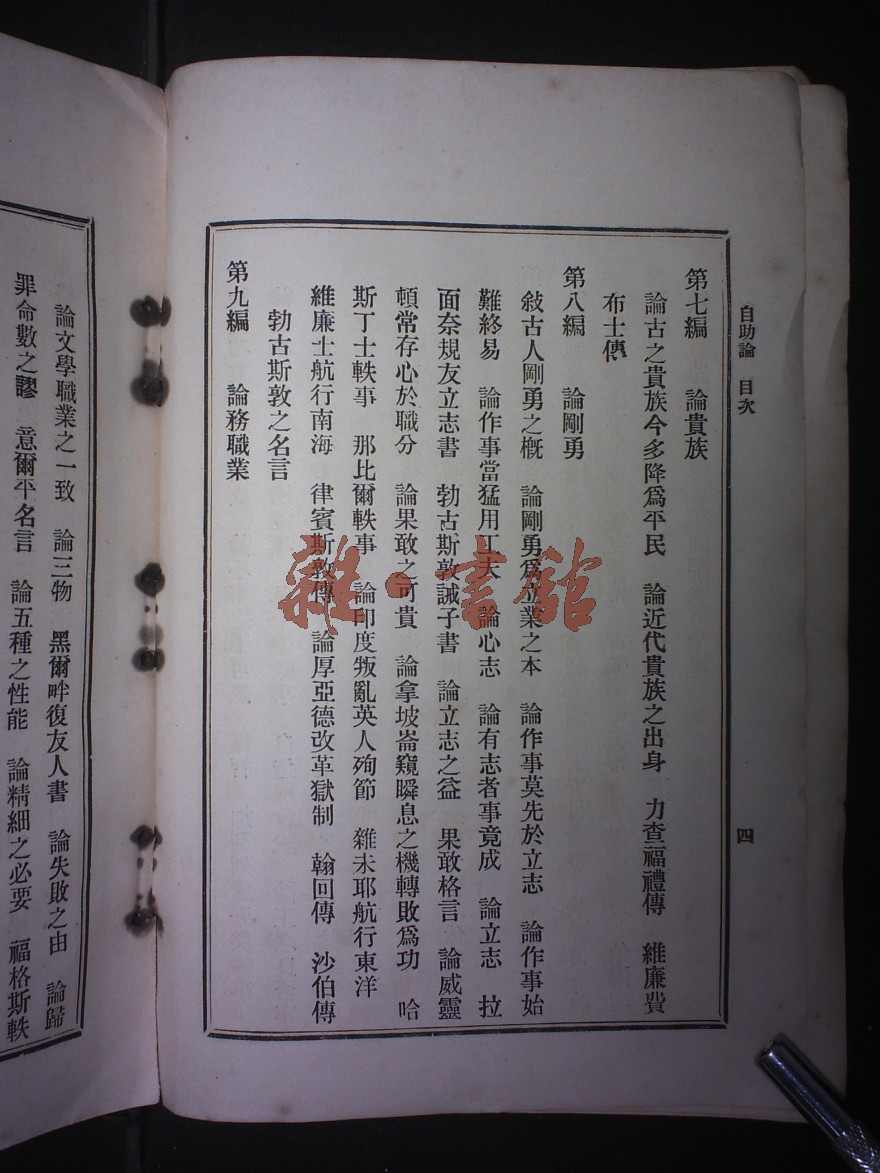 自助論　目次
四
第七編　　論貴族
論古之貴族今多降爲平民　論近代貴族之出身　力查福禮傳　維廉費
布士傳
第八編　　論剛勇
敍古人剛勇之槪　論剛勇爲立業之本　論作事莫先於立志　論作事始
難終易　論作事當猛用工夫　論心志　論有志者事竟成　論立志　拉
面奈規友立志書　勃古斯敦誡子書　論立志之益　果敢格言　論威靈
頓常存心於職分　論果敢之可貴　論拿坡崙窺瞬息之機轉敗爲功　哈
斯丁士軼事　那比爾軼事　論印度叛亂英人殉節　雜未耶航行東洋
維廉士航行南海　律賓斯敦傳　論厚亞德改革獄制　翰回傳　沙伯傳
勃古斯敦之名言
第九編　　論務職業
論文學職業之一致　論三物　黑爾畔復友人書　論失敗之由　論歸
罪命數之謬　意爾平名言　論五種之性能　論精細之必要　福格斯軼
雜·書館